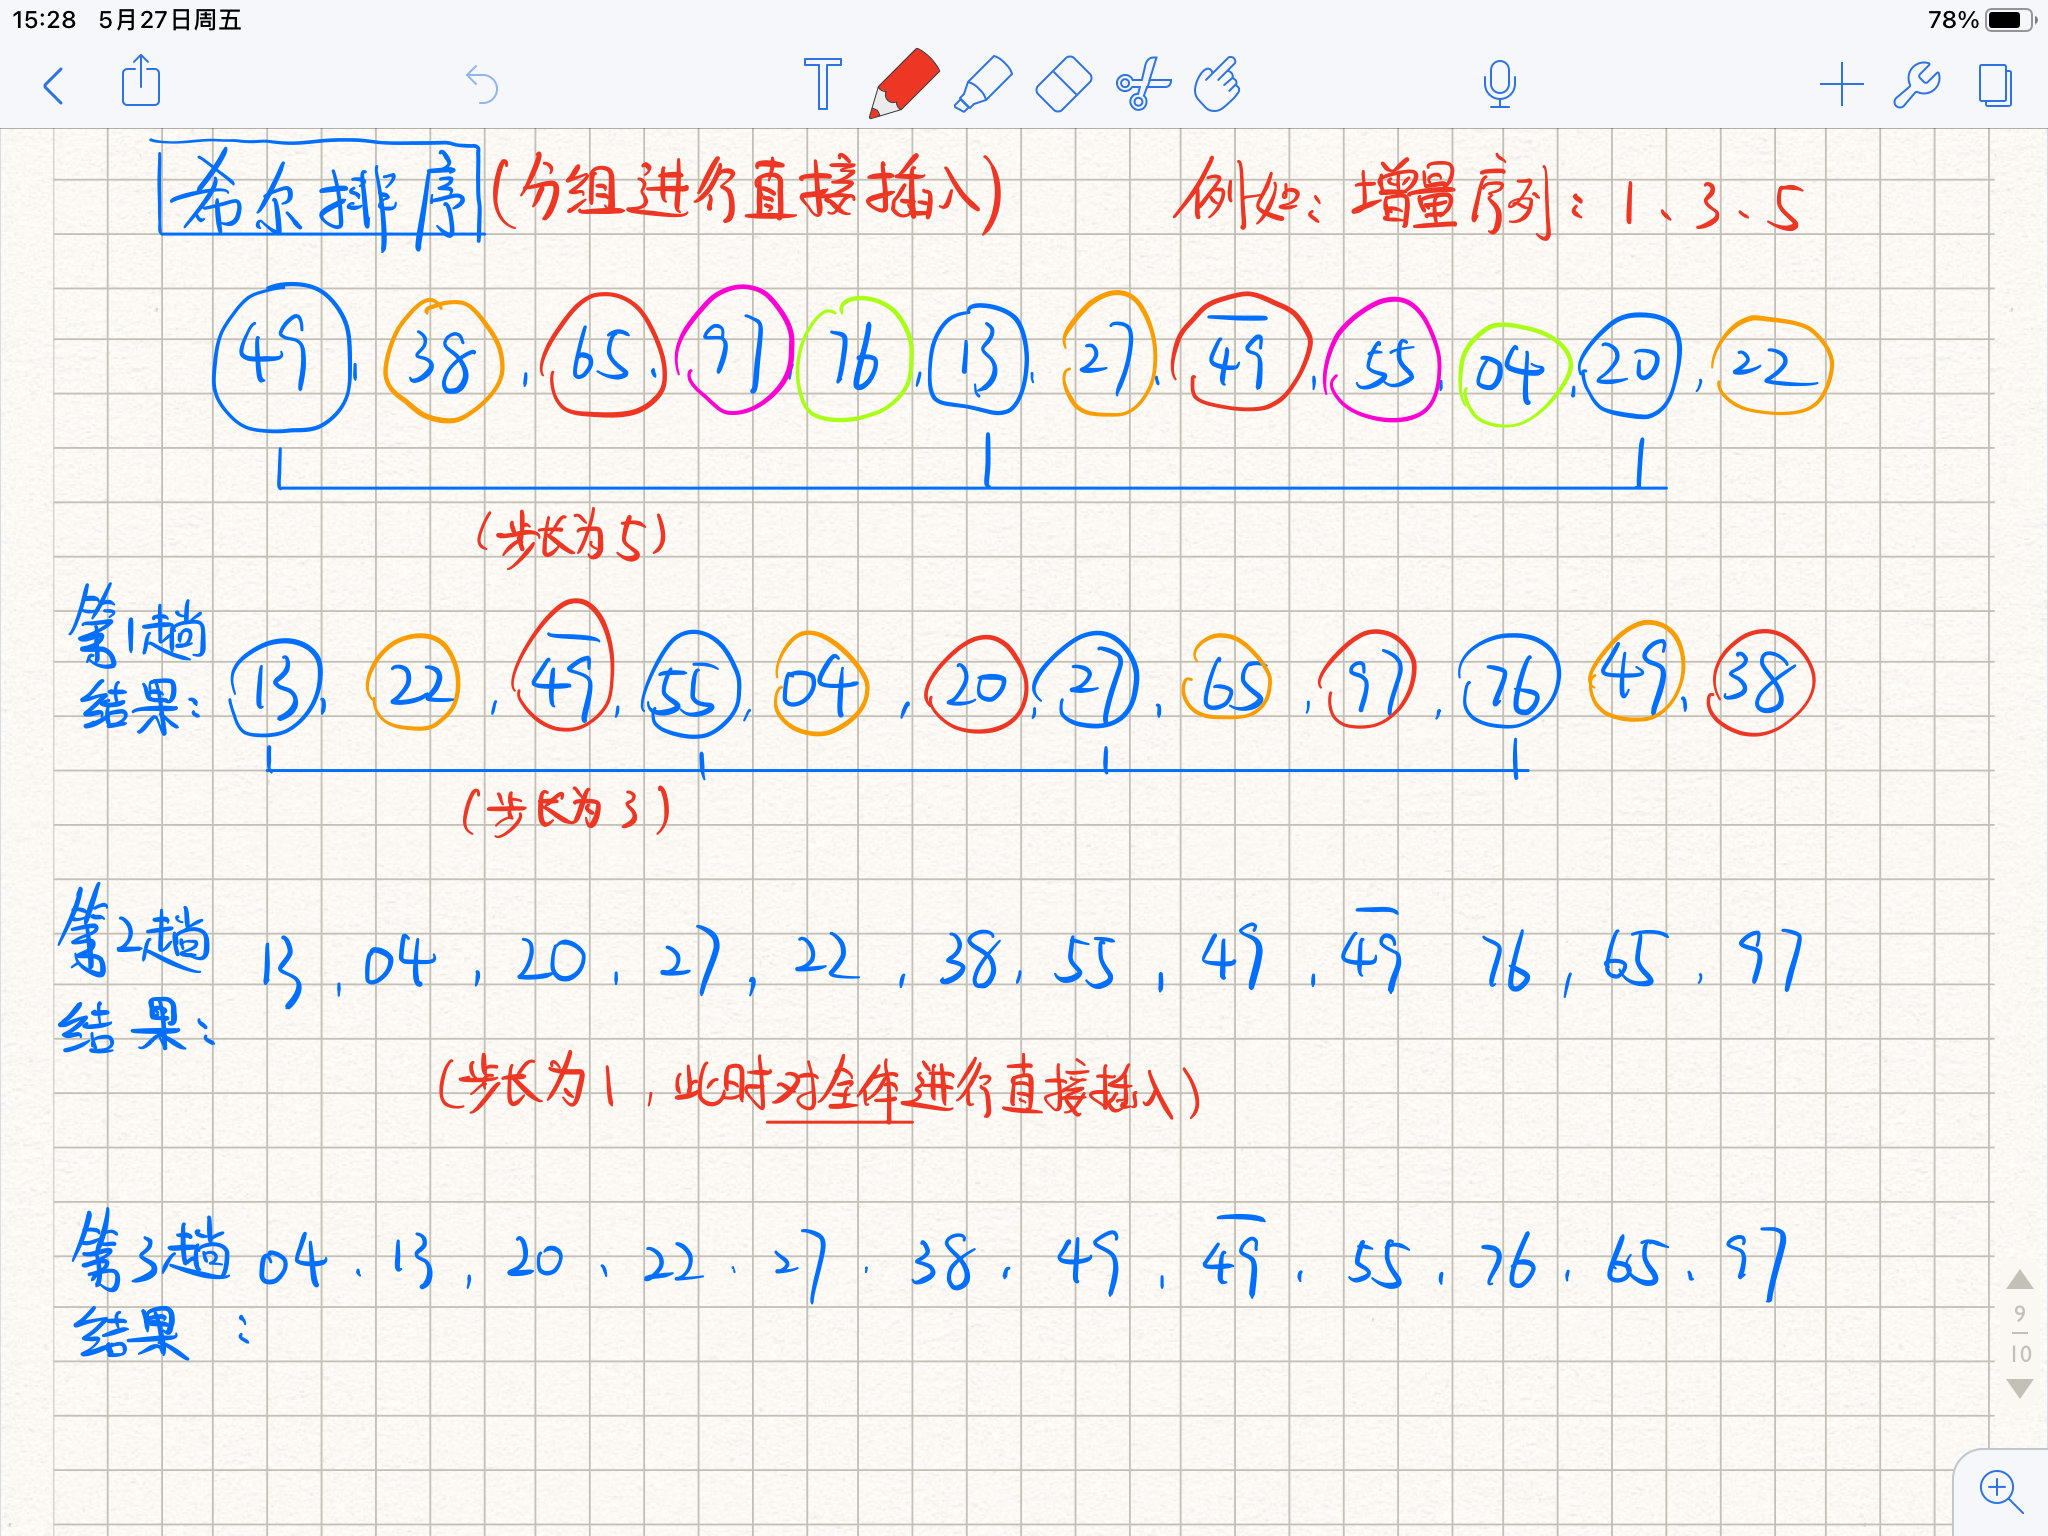 15:28 5月27日周五 78%
T
希尔排序 (分组进行直接插入) 例如: 增量序列: 1、3、5
49, 38, 65, 97, 76, 13, 27, 4̅9̅, 55, 04, 20, 22
(步长为5)
第1趟结果: 13, 22, 4̅9̅, 55, 04, 20, 27, 65, 97, 76, 49, 38
(步长为3)
第2趟结果: 13, 04, 20, 27, 22, 38, 55, 49, 4̅9̅ 76, 65, 97
(步长为1, 此时对全体进行直接插入)
第3趟结果: 04、13, 20、22、27、38、49、4̅9̅、55、76、65、97
9
10